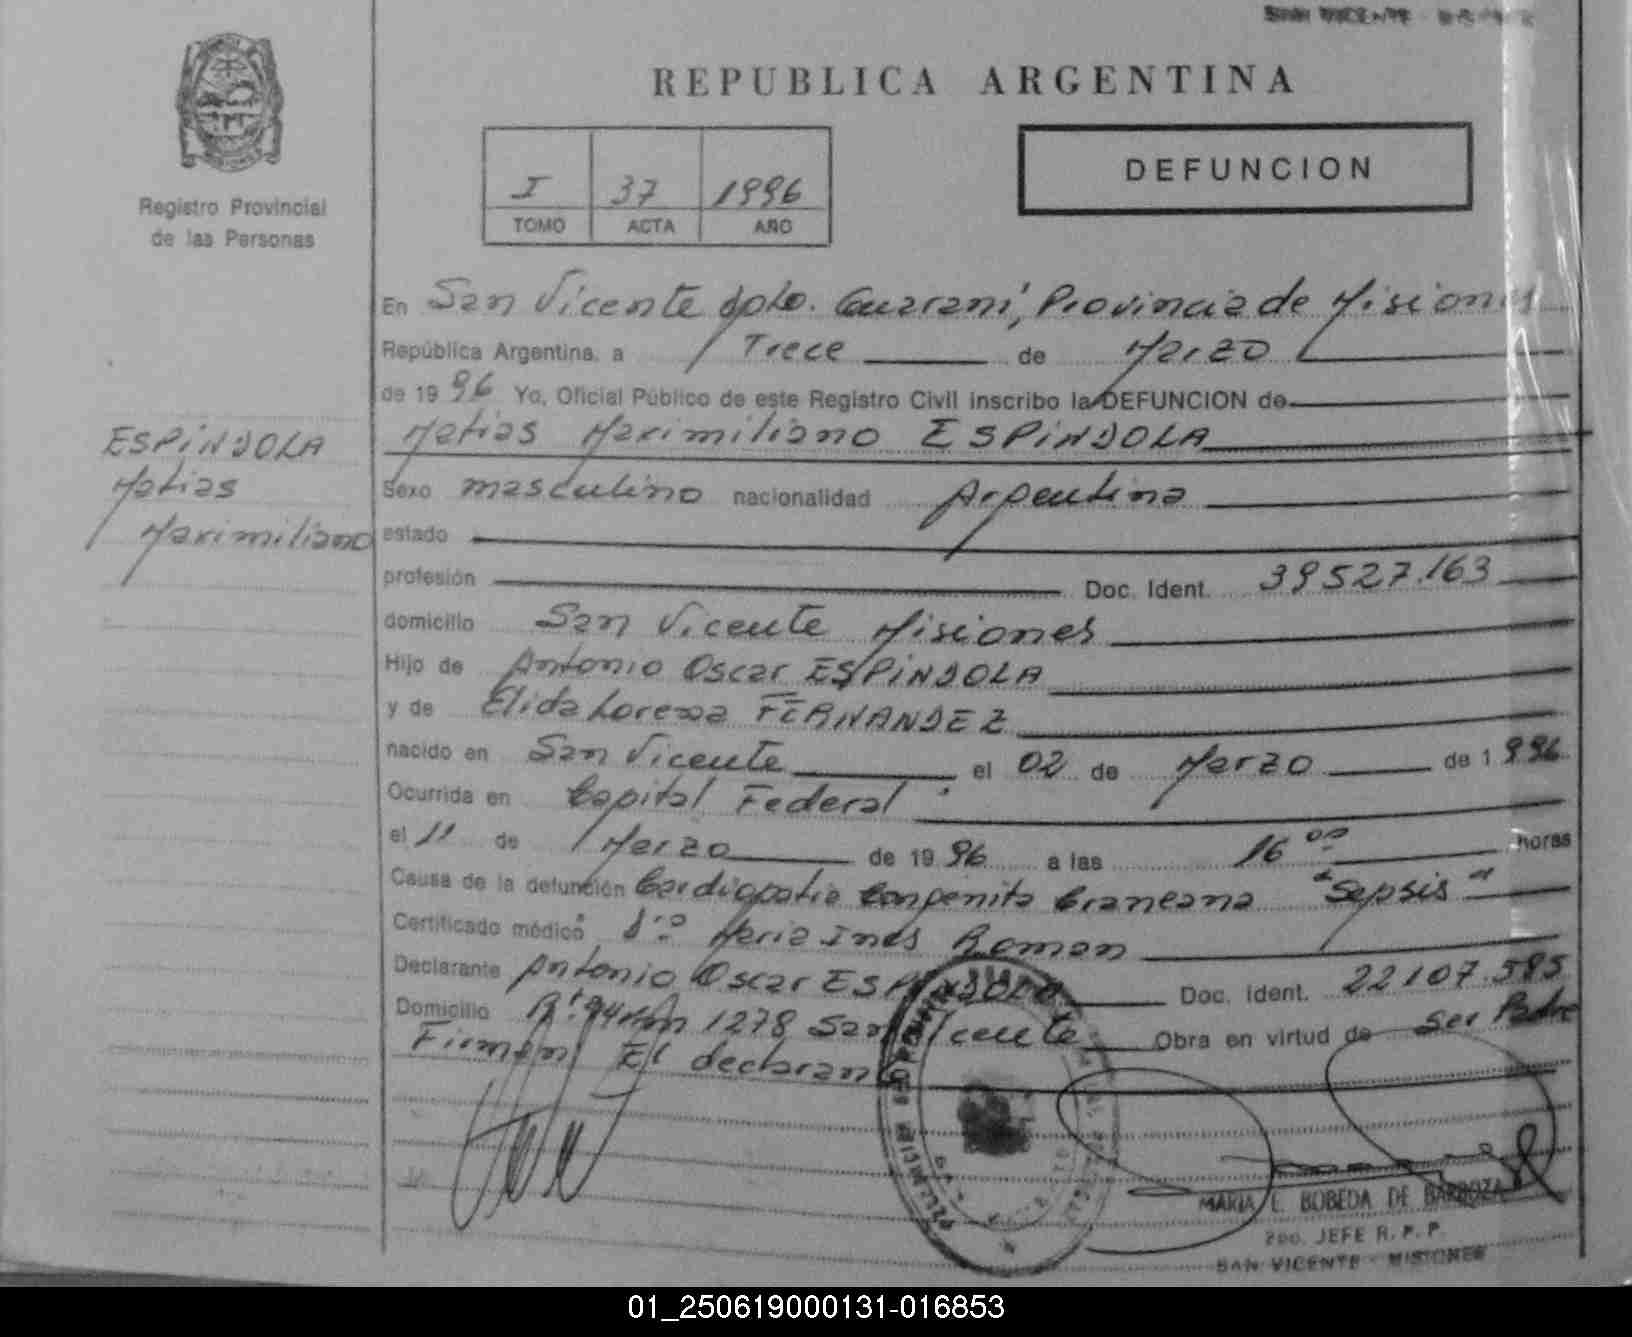 SAN VICENTE - MISIONES
REPUBLICA ARGENTINA
I 37 1996
TOMO ACTA AÑO
DEFUNCION
Registro Provincial
de las Personas
En San Vicente dpto. Guaraní, Provincia de Misiones
República Argentina, a Trece de Marzo
de 1996 Yo, Oficial Público de este Registro Civil inscribo la DEFUNCION de
Matias Maximiliano ESPINDOLA
ESPINDOLA
Matias
Maximiliano
Sexo masculino nacionalidad Argentina
estado
profesión Doc. Ident. 39527.163
domicilio San Vicente Misiones
Hijo de Antonio Oscar ESPINDOLA
y de Elida Lorena FERNANDEZ
nacido en San Vicente el 02 de Marzo de 1996
Ocurrida en Capital Federal
el 11 de Marzo de 1996 a las 16 00 horas
Causa de la defunción Cardiopatia Congenita "Sepsis"
Certificado médico Dra Maria Ines Roman
Declarante Antonio Oscar ESPINDOLA Doc. Ident. 22107.585
Domicilio 1278 San Vicente Obra en virtud de Ser Padre
Firman El declarante
MARIA L. BOBEDA DE BARBOZA
2DO. JEFE R. P. P.
SAN VICENTE - MISIONES
01_250619000131-016853